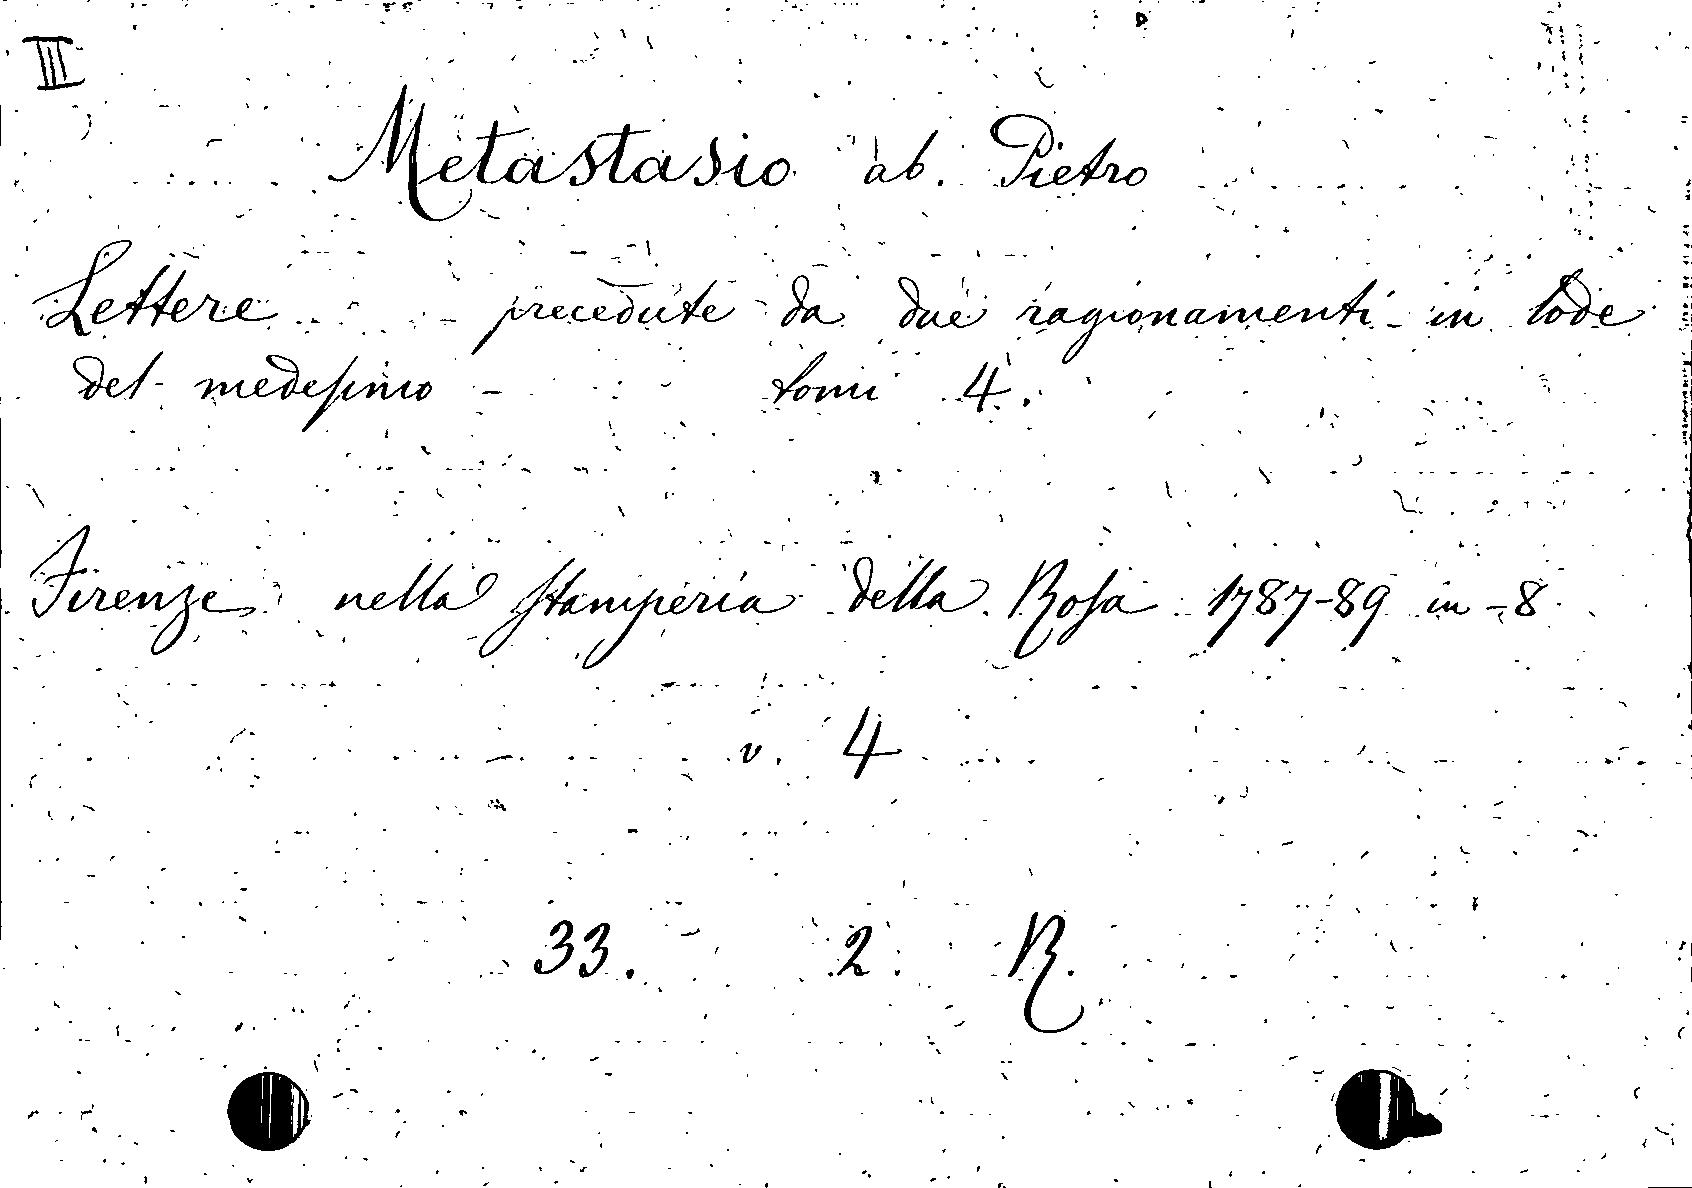 III
Metastasio ab. Pietro
Lettere precedute da due ragionamenti in lode
del medesimo - tomi 4.
Firenze nella stamperia della Rosa 1787-89 in-8
v. 4
33. 2. R.